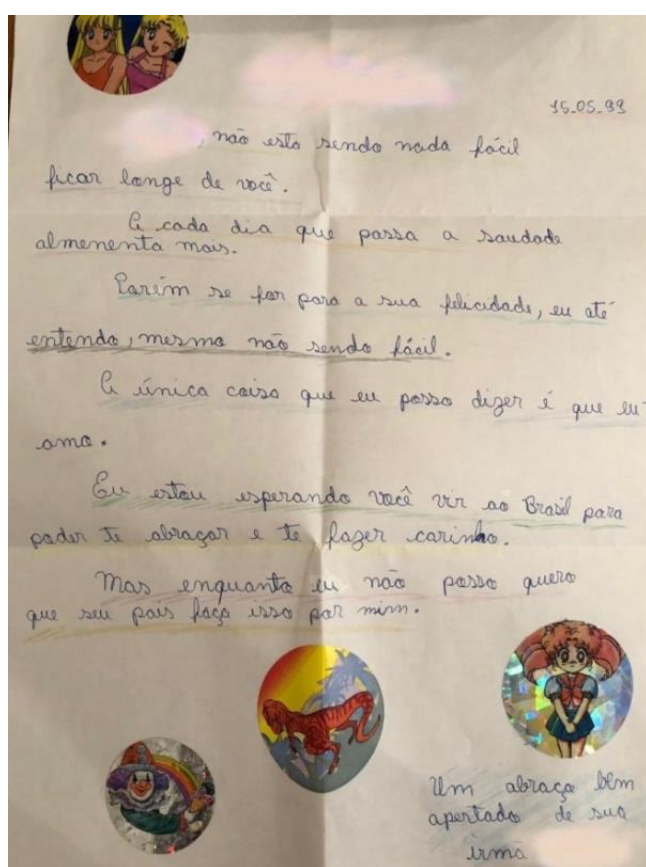 15-05-99
, não esta sendo nada fácil
ficar longe de você.
A cada dia que passa a saudade
almenenta mais.
Porém se for para a sua felicidade, eu até
entendo, mesmo não sendo fácil.
A única coisa que eu posso dizer é que eu
amo.
Eu estou esperando você vir ao Brasil para
poder te abraçar e te fazer carinho.
Mas enquanto eu não posso quero
que seu pais faça isso por mim.
Um abraço bem
apertado de sua
irmã